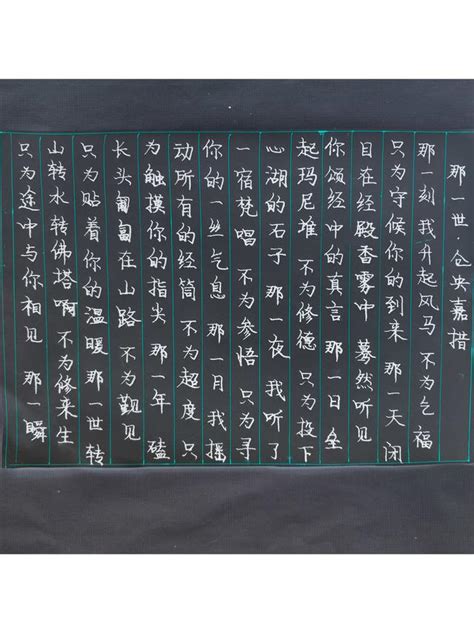 那一世·仓央嘉措
那一刻 我升起风马 不为乞福
只为守候你的到来 那一天 闭
目在经殿香雾中 蓦然听见
你颂经中的真言 那一日 垒
起玛尼堆 不为修德 只为投下
心湖的石子 那一夜 我听了
一宿梵唱 不为参悟 只为寻
你的一丝气息 那一月 我摇
动所有的经筒 不为超度 只
为触摸你的指尖 那一年 磕
长头匍匐在山路 不为觐见
只为贴着你的温暖 那一世 转
山转水转佛塔啊 不为修来生
只为途中与你相见 那一瞬